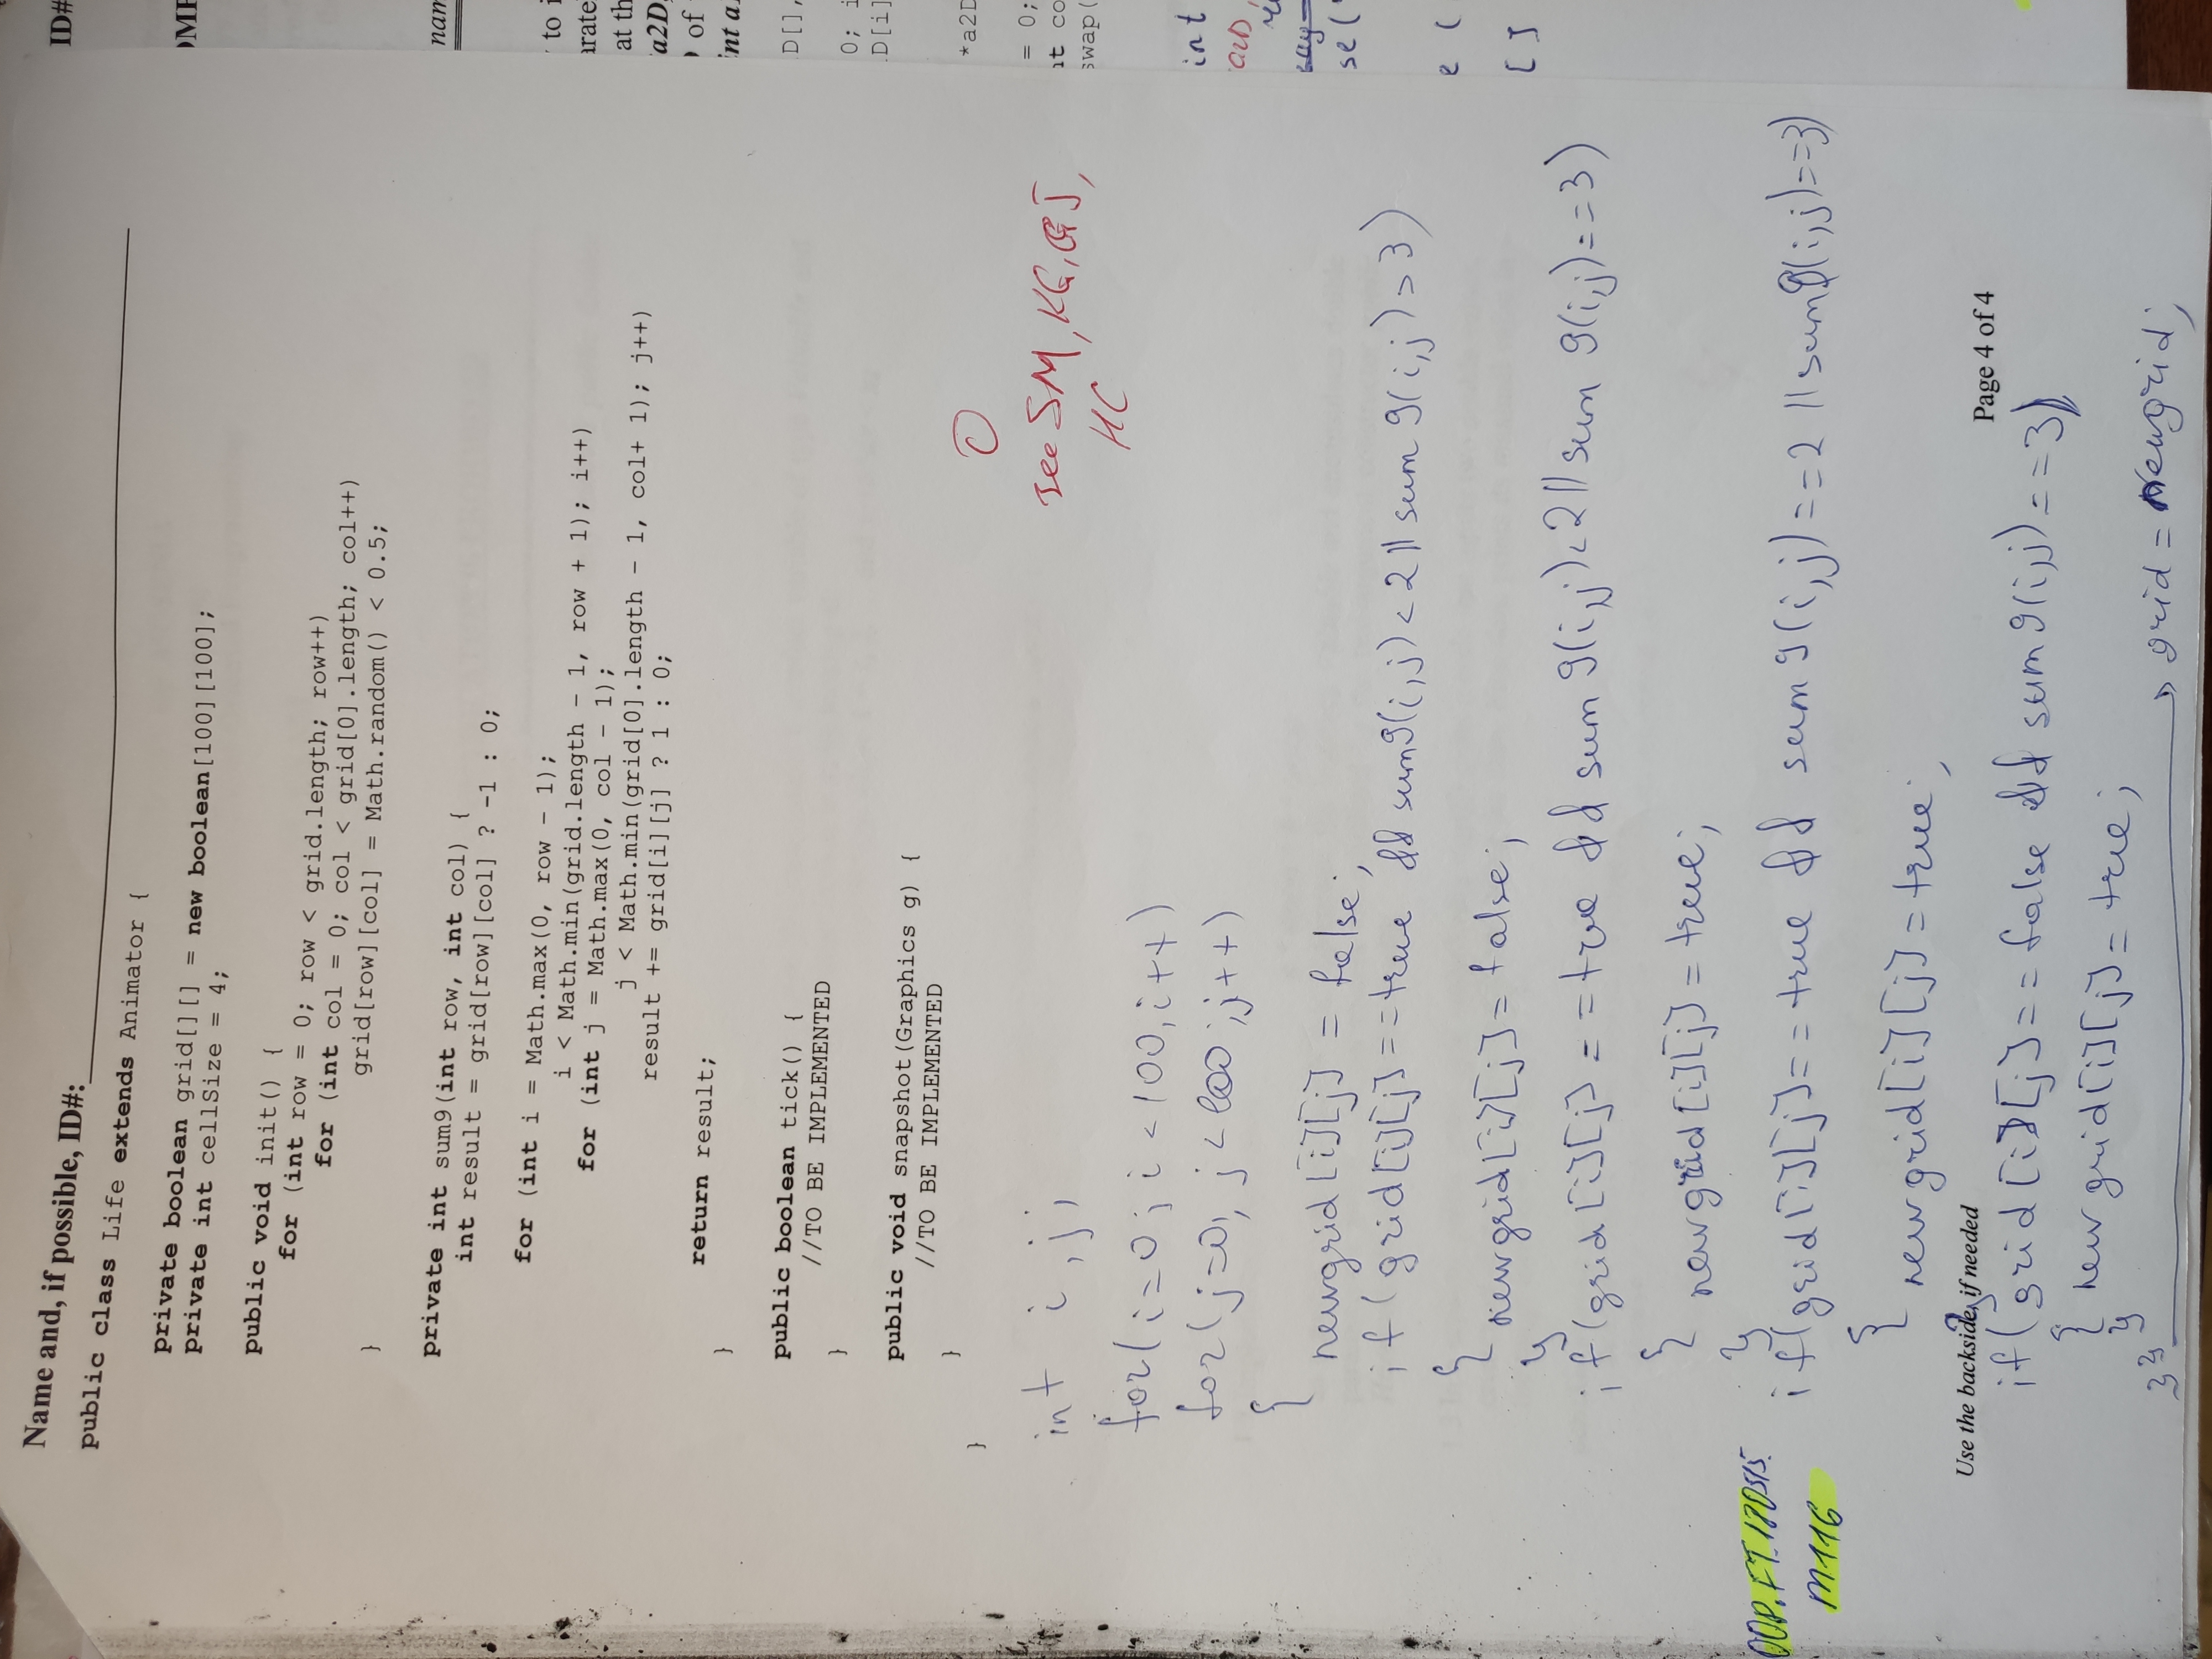 Name and, if possible, ID#:
public class Life extends Animator {
private boolean grid[][] = new boolean[100][100];
private int cellSize = 4;
public void init() {
for (int row = 0; row < grid.length; row++)
for (int col = 0; col < grid[0].length; col++)
grid[row][col] = Math.random() < 0.5;
}
private int sum9(int row, int col) {
int result = grid[row][col] ? -1 : 0;
for (int i = Math.max(0, row - 1);
i < Math.min(grid.length - 1, row + 1); i++)
for (int j = Math.max(0, col - 1);
j < Math.min(grid[0].length - 1, col+ 1); j++)
result += grid[i][j] ? 1 : 0;
return result;
}
public boolean tick() {
//TO BE IMPLEMENTED
}
public void snapshot(Graphics g) {
//TO BE IMPLEMENTED
}
}
0
see SM, KG, GJ,
HC
int i, j;
for(i=0; i<100, i++)
for(j=0; j<100; j++)
{
newgrid[i][j] = false;
if(grid[i][j]==true && sum9(i,j)<2 || sum9(i,j)>3)
{
newgrid[i][j]= false;
}
if(grid[i][j]==true && sum9(i,j)<2 || sum9(i,j)==3)
{ newgrid[i][j]=true;
}
OOP.FT.180515.
M116
if(grid[i][j]==true && sum9(i,j)==2 || sum9(i,j)==3)
{ newgrid[i][j]=true;
}
Use the backside, if needed
Page 4 of 4
if(grid[i][j]==false && sum9(i,j)==3)
{ newgrid[i][j]=true;
}
}} grid = newgrid;
ID#
nam
to i
at th
a2D,
of
int a
D[],
0; i
D[i]
*a2D
= 0;
swap(
int
a2D,
se("
e (
[]